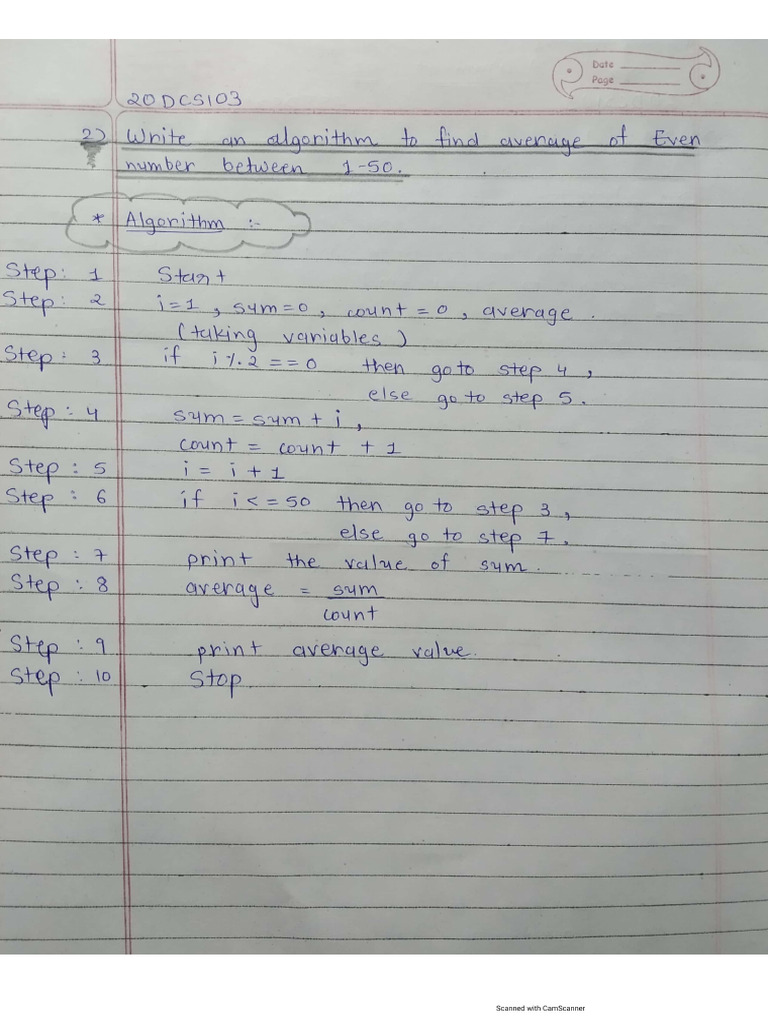 Date
Page
20DCS103
2) Write an algorithm to find average of Even
number between 1-50.
* Algorithm :-
Step: 1 Start
Step: 2 i=1, sum=0, count=0, average.
(taking variables)
Step: 3 if i%2==0 then go to step 4,
else go to step 5.
Step: 4 sum=sum+i,
count=count+1
Step: 5 i=i+1
Step: 6 if i<=50 then go to step 3,
else go to step 7.
Step: 7 print the value of sum.
Step: 8 average = sum
count
Step: 9 print average value.
Step: 10 Stop
Scanned with CamScanner